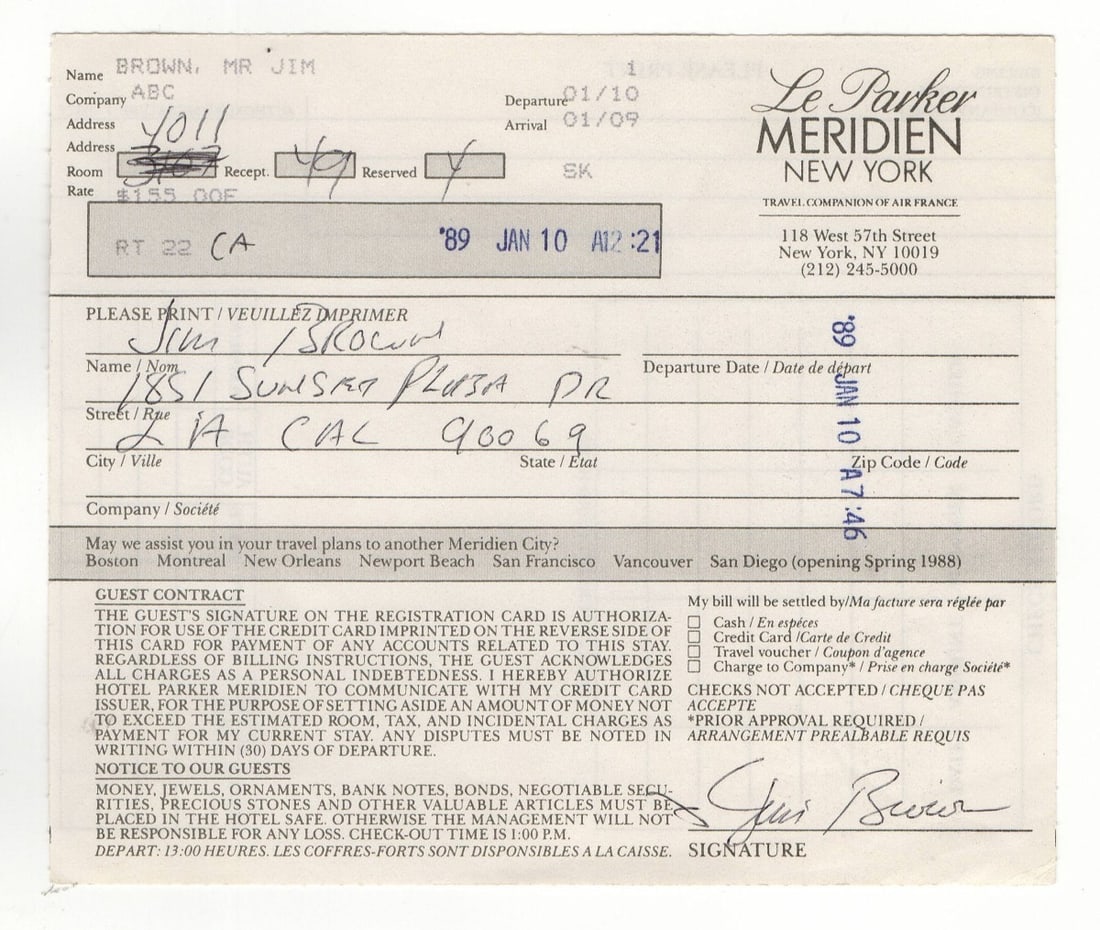 Name BROWN, MR JIM 1
Company ABC
Departure 01/10
Address 4011
Arrival 01/09
Address
Room 3107 Recept. 49 Reserved 4 SK
Rate $155 00F
RT 22 CA '89 JAN 10 A12:21
Le Parker
MERIDIEN
NEW YORK
TRAVEL COMPANION OF AIR FRANCE
118 West 57th Street
New York, NY 10019
(212) 245-5000
PLEASE PRINT / VEUILLEZ IMPRIMER
Jim BROWN
Name / Nom
Departure Date / Date de départ
'89 JAN 10 A7:46
1851 SUNSET PLAZA DR
Street / Rue
LA CAL 90069
City / Ville State / Etat Zip Code / Code
Company / Société
May we assist you in your travel plans to another Meridien City?
Boston Montreal New Orleans Newport Beach San Francisco Vancouver San Diego (opening Spring 1988)
GUEST CONTRACT
THE GUEST'S SIGNATURE ON THE REGISTRATION CARD IS AUTHORIZA-
TION FOR USE OF THE CREDIT CARD IMPRINTED ON THE REVERSE SIDE OF
THIS CARD FOR PAYMENT OF ANY ACCOUNTS RELATED TO THIS STAY.
REGARDLESS OF BILLING INSTRUCTIONS, THE GUEST ACKNOWLEDGES
ALL CHARGES AS A PERSONAL INDEBTEDNESS. I HEREBY AUTHORIZE
HOTEL PARKER MERIDIEN TO COMMUNICATE WITH MY CREDIT CARD
ISSUER, FOR THE PURPOSE OF SETTING ASIDE AN AMOUNT OF MONEY NOT
TO EXCEED THE ESTIMATED ROOM, TAX, AND INCIDENTAL CHARGES AS
PAYMENT FOR MY CURRENT STAY. ANY DISPUTES MUST BE NOTED IN
WRITING WITHIN (30) DAYS OF DEPARTURE.
NOTICE TO OUR GUESTS
MONEY, JEWELS, ORNAMENTS, BANK NOTES, BONDS, NEGOTIABLE SECU-
RITIES, PRECIOUS STONES AND OTHER VALUABLE ARTICLES MUST BE
PLACED IN THE HOTEL SAFE. OTHERWISE THE MANAGEMENT WILL NOT
BE RESPONSIBLE FOR ANY LOSS. CHECK-OUT TIME IS 1:00 P.M.
DEPART: 13:00 HEURES. LES COFFRES-FORTS SONT DISPONSIBLES A LA CAISSE.
My bill will be settled by/Ma facture sera réglée par
Cash / En espéces
Credit Card /Carte de Credit
Travel voucher / Coupon d'agence
Charge to Company* / Prise en charge Société*
CHECKS NOT ACCEPTED / CHEQUE PAS
ACCEPTE
*PRIOR APPROVAL REQUIRED /
ARRANGEMENT PREALBABLE REQUIS
Jim Brown
SIGNATURE